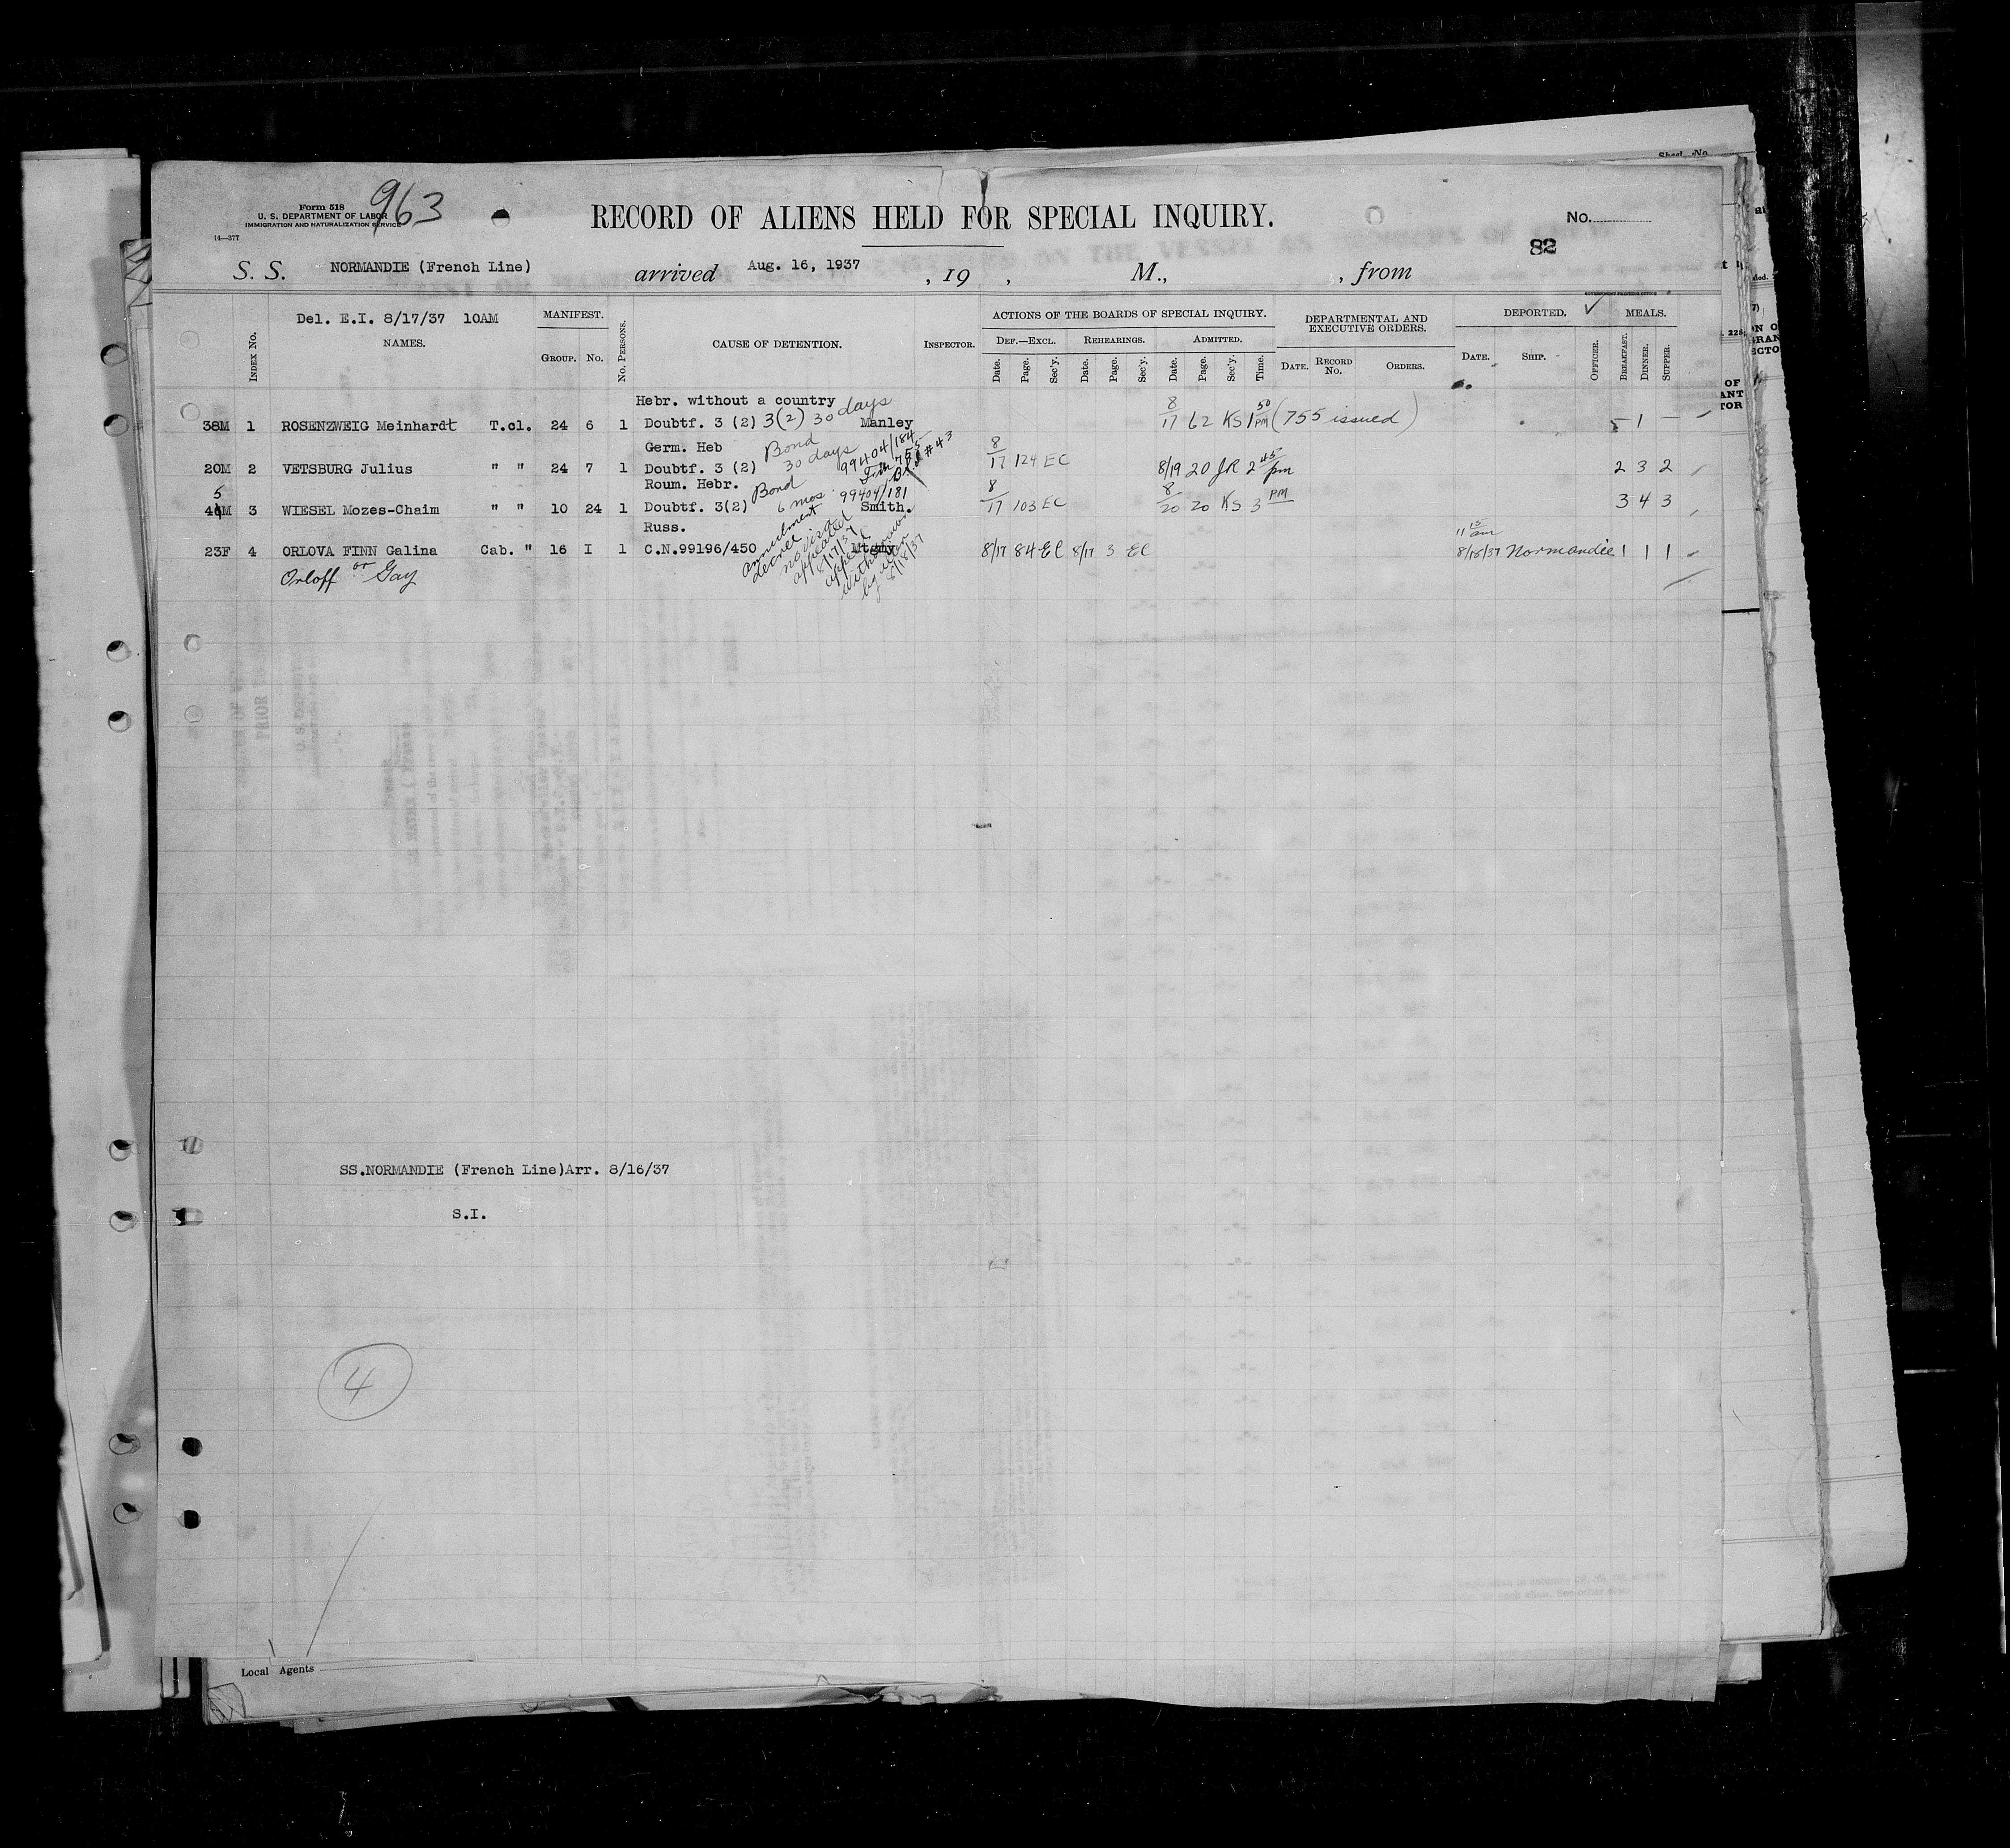 Sheet No.
Form 518
U. S. DEPARTMENT OF LABOR
IMMIGRATION AND NATURALIZATION SERVICE
14—377
963
RECORD OF ALIENS HELD FOR SPECIAL INQUIRY.
No.
82
S. S. NORMANDIE (French Line) arrived Aug. 16, 1937 , 19 , M., , from
GOVERNMENT PRINTING OFFICE
Index No.
Del. E.I. 8/17/37 10AM
NAMES.
MANIFEST.
Group. No.
No. Persons.
CAUSE OF DETENTION.
Inspector.
ACTIONS OF THE BOARDS OF SPECIAL INQUIRY.
Def.—Excl. Rehearings. Admitted.
Date. Page. Sec'y. Date. Page. Sec'y. Date. Page. Sec'y. Time.
DEPARTMENTAL AND
EXECUTIVE ORDERS.
Date. Record No. Orders.
DEPORTED. ✓
Date. Ship. Officer.
MEALS.
Breakfast. Dinner. Supper.
Hebr. without a country
38M 1 ROSENZWEIG Meinhardt T.cl. 24 6 1 Doubtf. 3 (2) 3(2) 30 days Manley 8/17 62 KS 1 50 PM (755 issued) – 1 –
Germ. Heb
20M 2 VETSBURG Julius " " 24 7 1 Doubtf. 3 (2) Bond 30 days 99404/184 755 #43 8/17 124 EC 8/19 20 JR 2 45 pm 2 3 2
Roum. Hebr.
5
3 WIESEL Mozes-Chaim " " 10 24 1 Doubtf. 3(2) Bond 6 mos. 99404/181 Smith. 8/17 103 EC 8/20 20 KS 3 PM 3 4 3
Russ.
23F 4 ORLOVA FINN Galina Cab. " 16 I 1 C.N.99196/450 Mtgmy 8/17 84 EC 8/17 3 EC 11 15 am 8/18/37 Normandie 1 1 1
Orloff or Gay
annulment
decree
no visa
appealed
8/17/37
appeal
withdrawn
by alien
8/18/37
SS.NORMANDIE (French Line)Arr. 8/16/37
S.I.
4
Local Agents